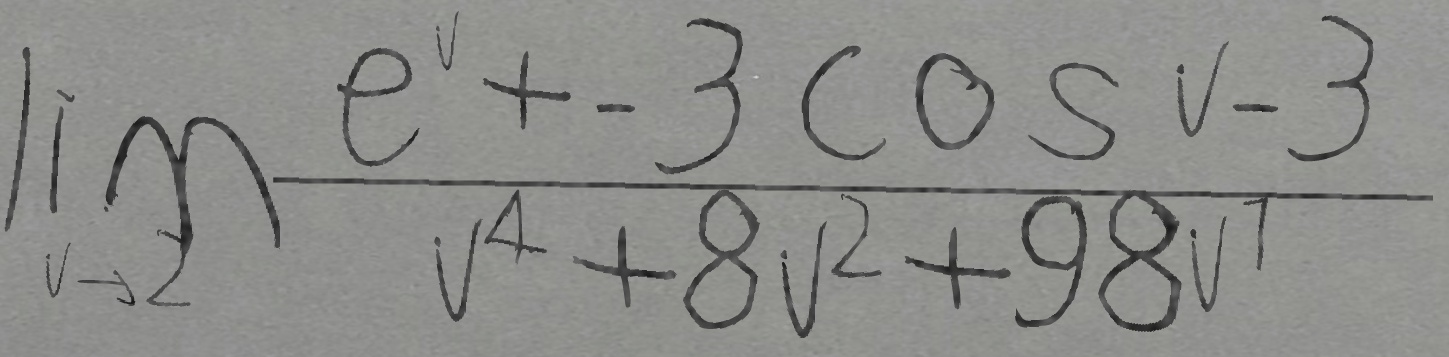 \lim_{v \to 2} \frac{e^{v} + -3 \cos v - 3}{v^{4} + 8v^{2} + 98v^{1}}